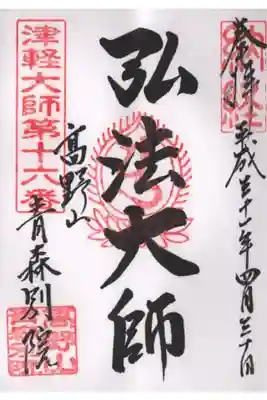 奉拝
平成二十一年四月三十日
弘法大師
高野山
青森別院
津軽大師第十六番